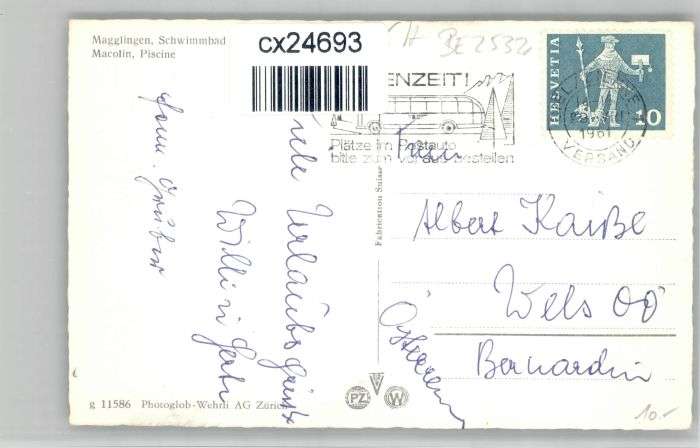 Magglingen, Schwimmbad
Macolin, Piscine
cx24693
BE2532
ENZEIT!
Plätze im Postauto
bitte zum voraus bestellen
HELVETIA
10
1961
VERSAND
Viele Urlaubsgrüsse
Willi u Gerti
Fam. Gruber
Fabrication Suisse
Albert Kaiße
Wels OÖ
Bernardin
Österreich
g 11586 Photoglob-Wehrli AG Zürich
PZ
W
10.-